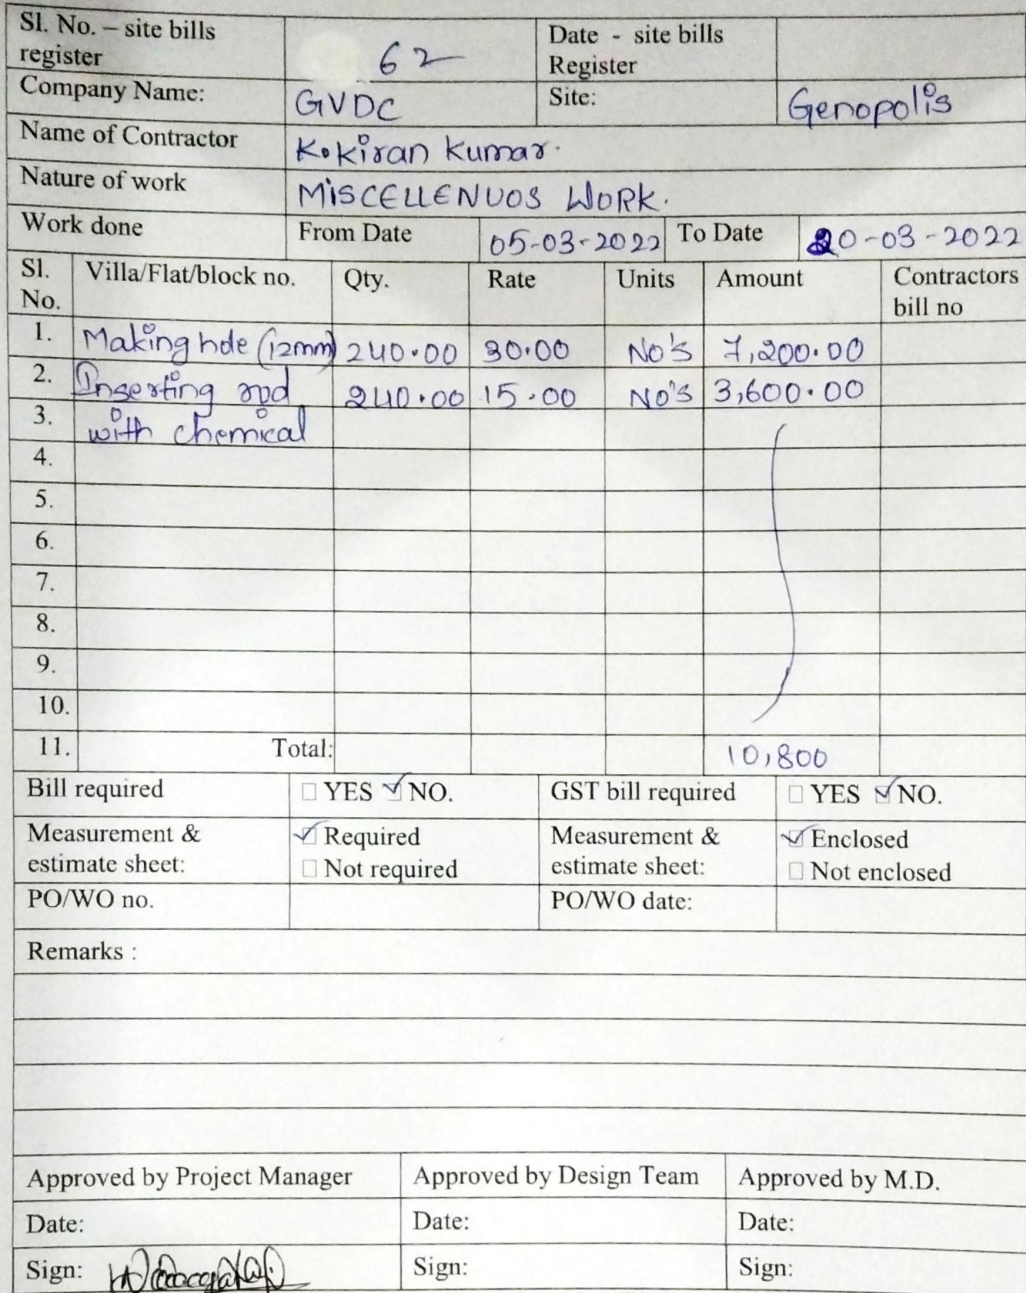 Sl. No. – site bills register 62 Date - site bills Register
Company Name: GVDC Site: Genopolis
Name of Contractor K. Kiran Kumar.
Nature of work MISCELLENUOS WORK.
Work done From Date 05-03-2022 To Date 20-03-2022
Sl. No. Villa/Flat/block no. Qty. Rate Units Amount Contractors bill no
1. Making hole (12mm) 240.00 30.00 No's 7,200.00
2. Inserting rod 240.00 15.00 No's 3,600.00
3. with chemical
4.
5.
6.
7.
8.
9.
10.
11. Total: 10,800
Bill required ☐ YES ☑ NO. GST bill required ☐ YES ☑ NO.
Measurement & estimate sheet: ☑ Required ☐ Not required Measurement & estimate sheet: ☑ Enclosed ☐ Not enclosed
PO/WO no. PO/WO date:
Remarks :
Approved by Project Manager Approved by Design Team Approved by M.D.
Date: Date: Date:
Sign: Sign: Sign: